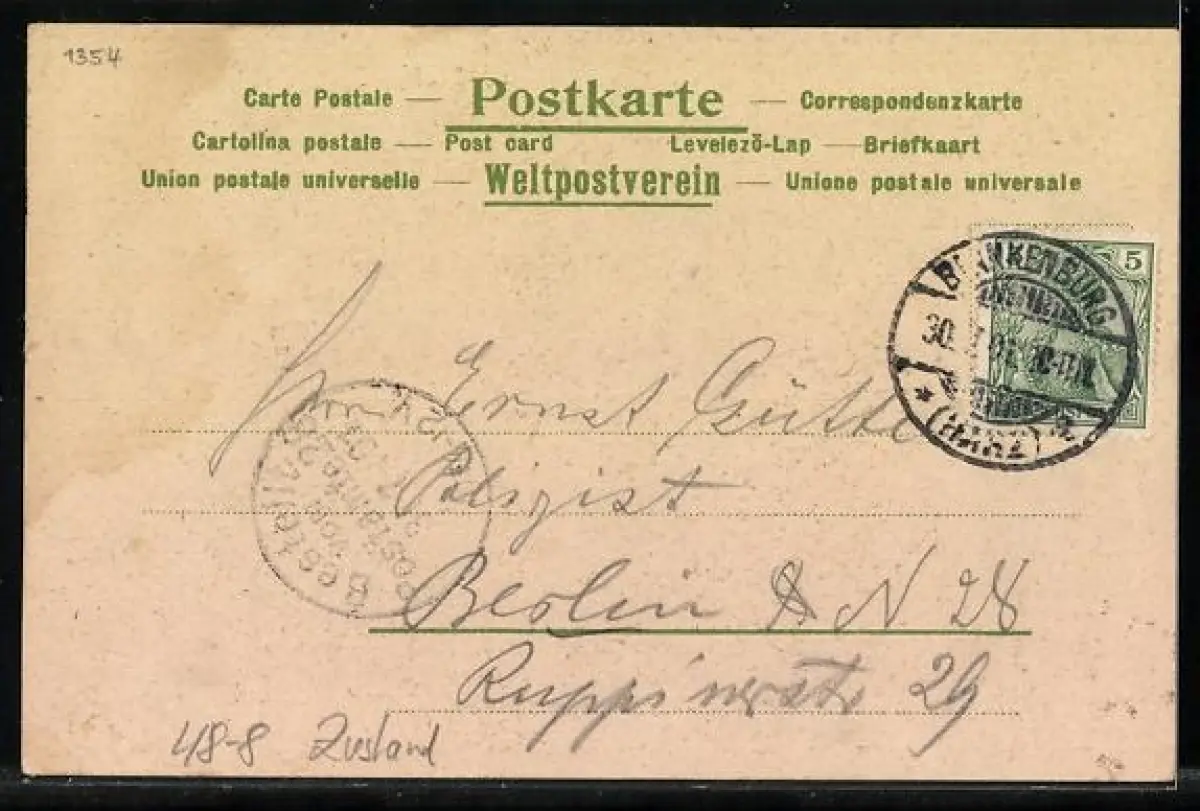 1354
Carte Postale — Postkarte — Correspondenzkarte
Cartolina postale — Post card Levelező-Lap — Briefkaart
Union postale universelle — Weltpostverein — Unione postale universale
5
BLANKENBURG
30.
(HARZ)
Ernst Gütte
Bestellt
vom
Postamte
Polizist
Berlin N 28
Ruppinerstr 29
48-8 Zustand